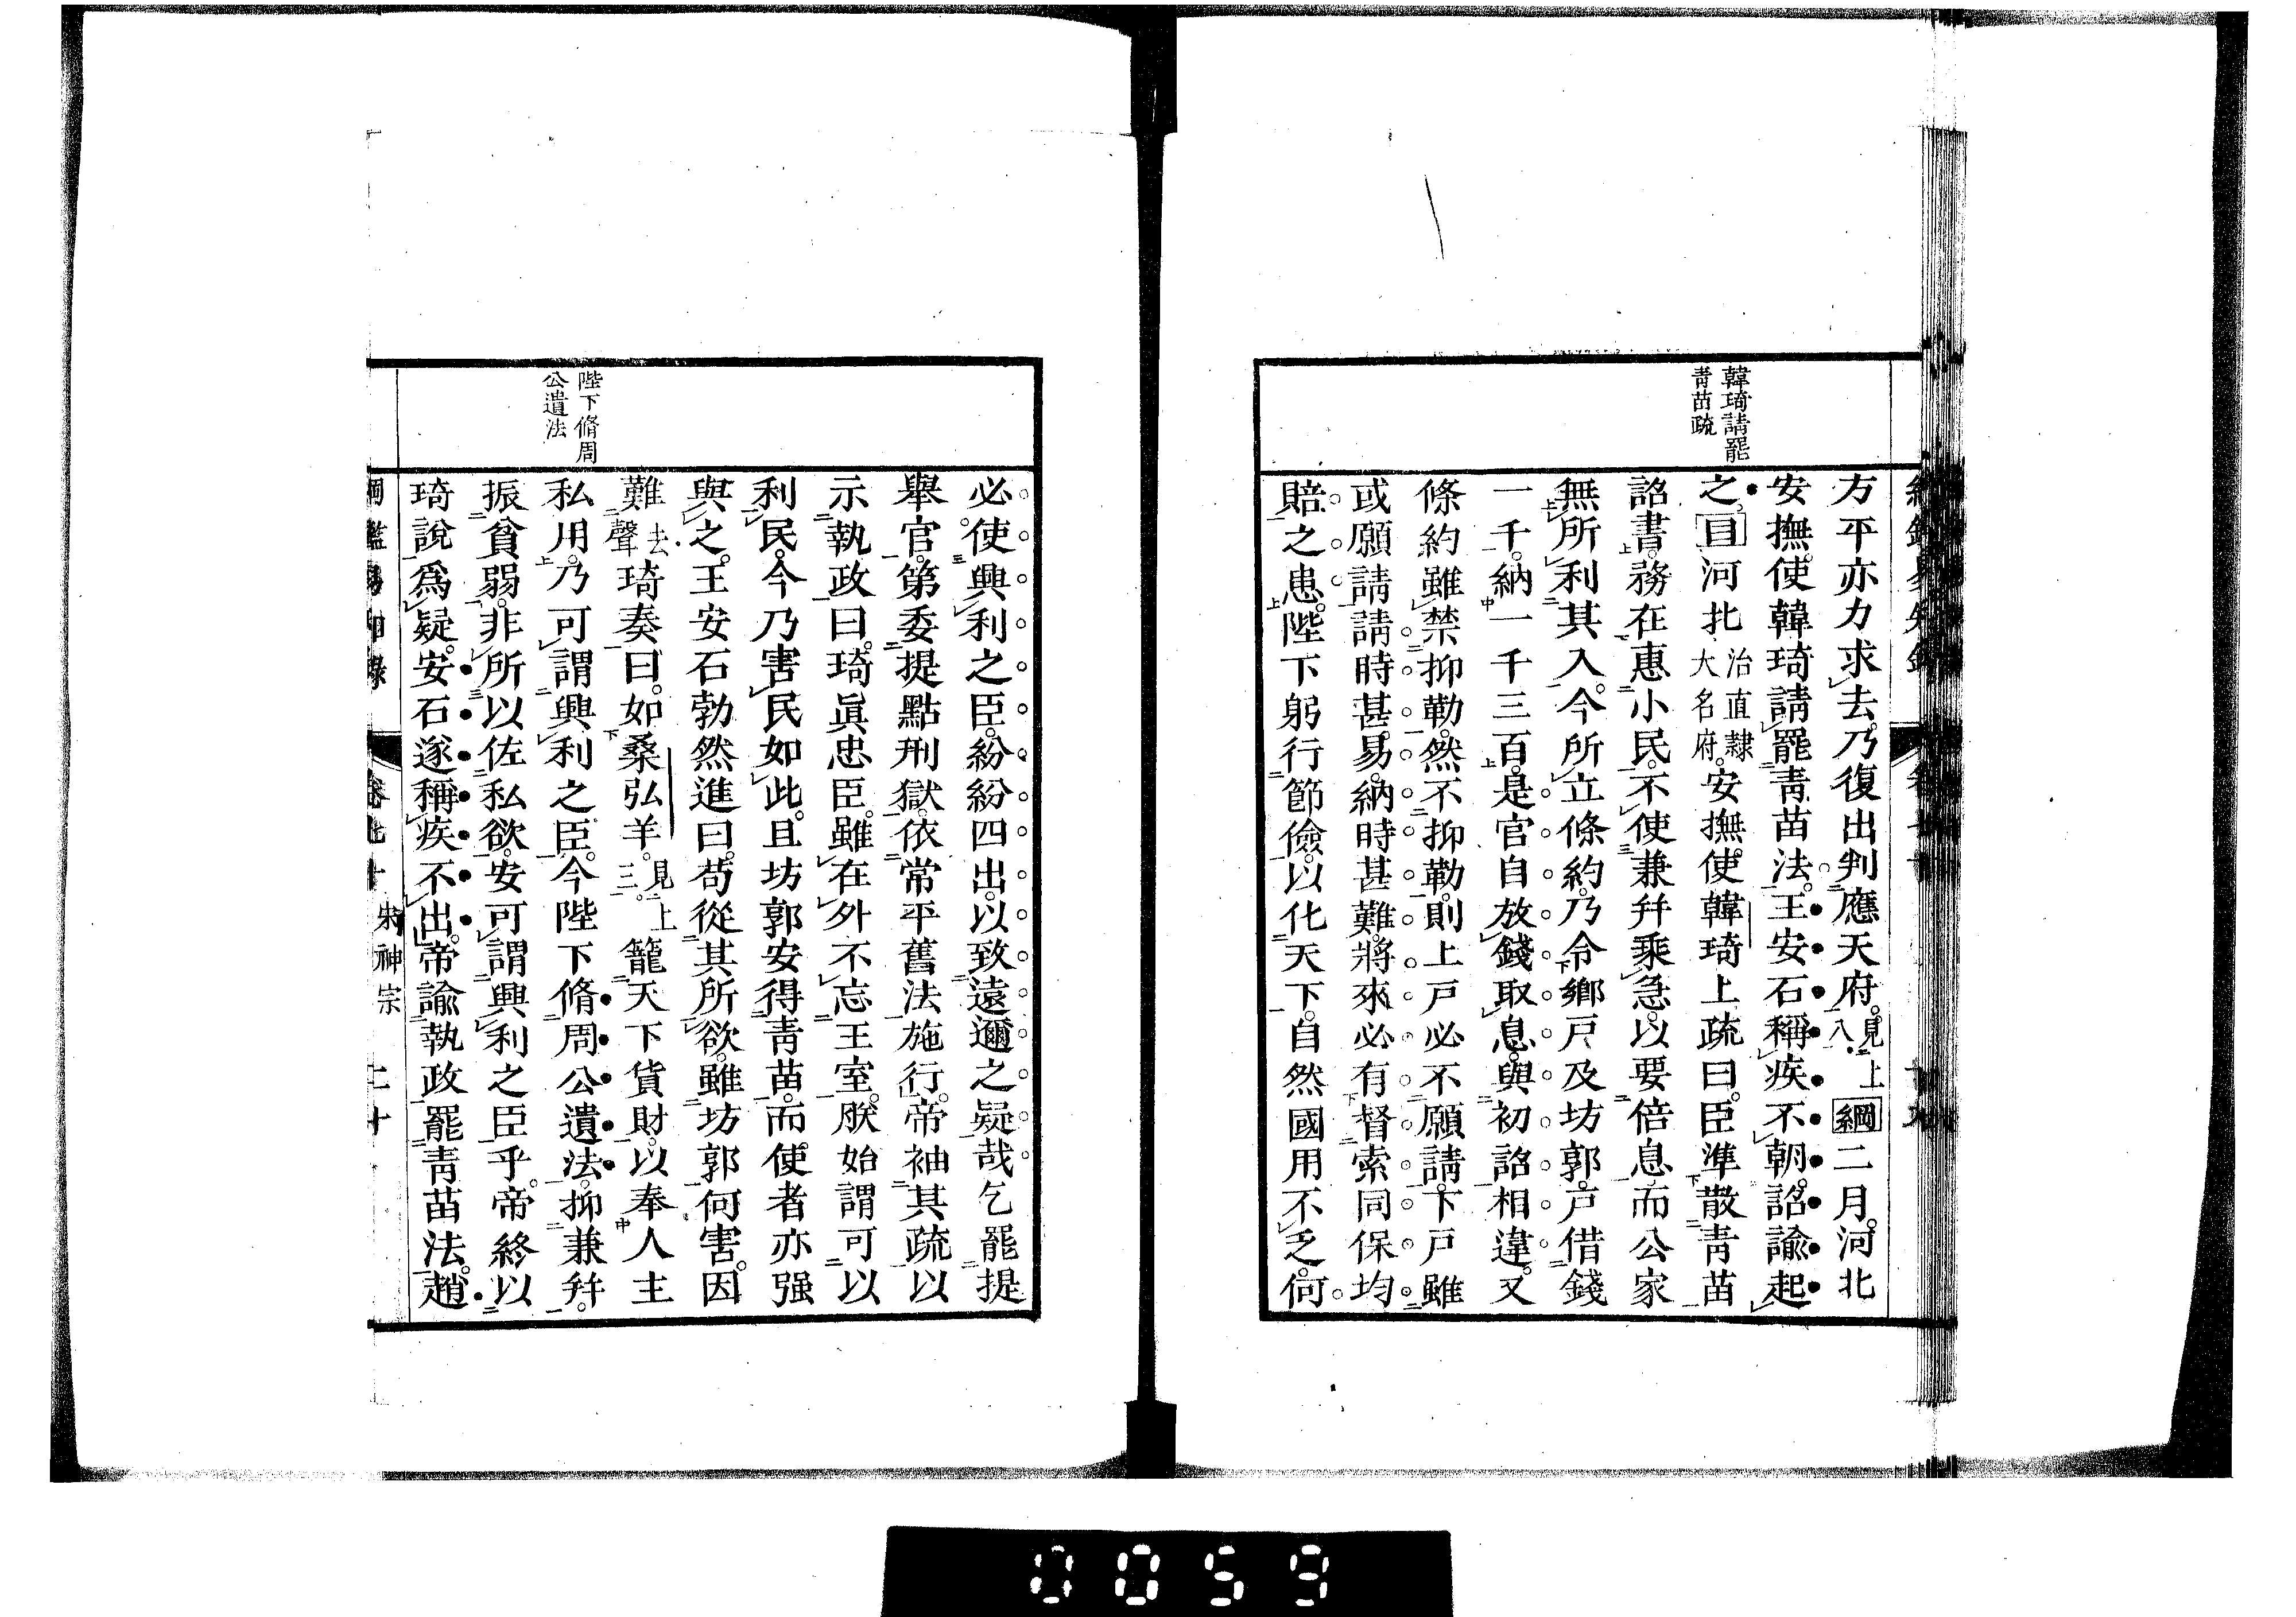 韓琦請罷
青苗疏
方平亦力求去。乃復出判應天府。見上八 綱二月。河北
安撫。使韓琦請罷青苗法。王安石稱疾不朝。詔諭起
之。目河北治直隸大名府。安撫。使韓琦上疏曰。臣準散青苗
詔書。務在惠小民。不使兼幷乘急。以要倍息。而公家
無所利其入。今所立條約。乃令鄉戸及坊郭。戸借錢
一千。納一千三百。是官自放錢取息。與初詔相違。又
條約雖禁抑勒。然不抑勒。則上戸必不願請。下戸雖
或願請。請時甚易。納時甚難。將來必有督索同保均
賠之患。陛下躬行節儉。以化天下。自然國用不乏。何
陛下脩周
公遺法
必使興利之臣。紛紛四出。以致遠邇之疑哉。乞罷提
舉官。第委提點刑獄。依常平舊法施行。帝袖其疏以
示執政曰。琦眞忠臣。雖在外不忘王室。朕始謂可以
利民。今乃害民如此。且坊郭安得青苗。而使者亦强
與之。王安石勃然進曰。苟從其所欲。雖坊郭何害。因
難去聲琦奏曰。如桑弘羊。見上三。籠天下貨財。以奉人主
私用。乃可謂興利之臣。今陛下脩周公遺法。抑兼幷。
振貧弱。非所以佐私欲。安可謂興利之臣乎。帝終以
琦說爲疑。安石遂稱疾不出。帝諭執政罷青苗法。趙
宋神宗 二十
0059